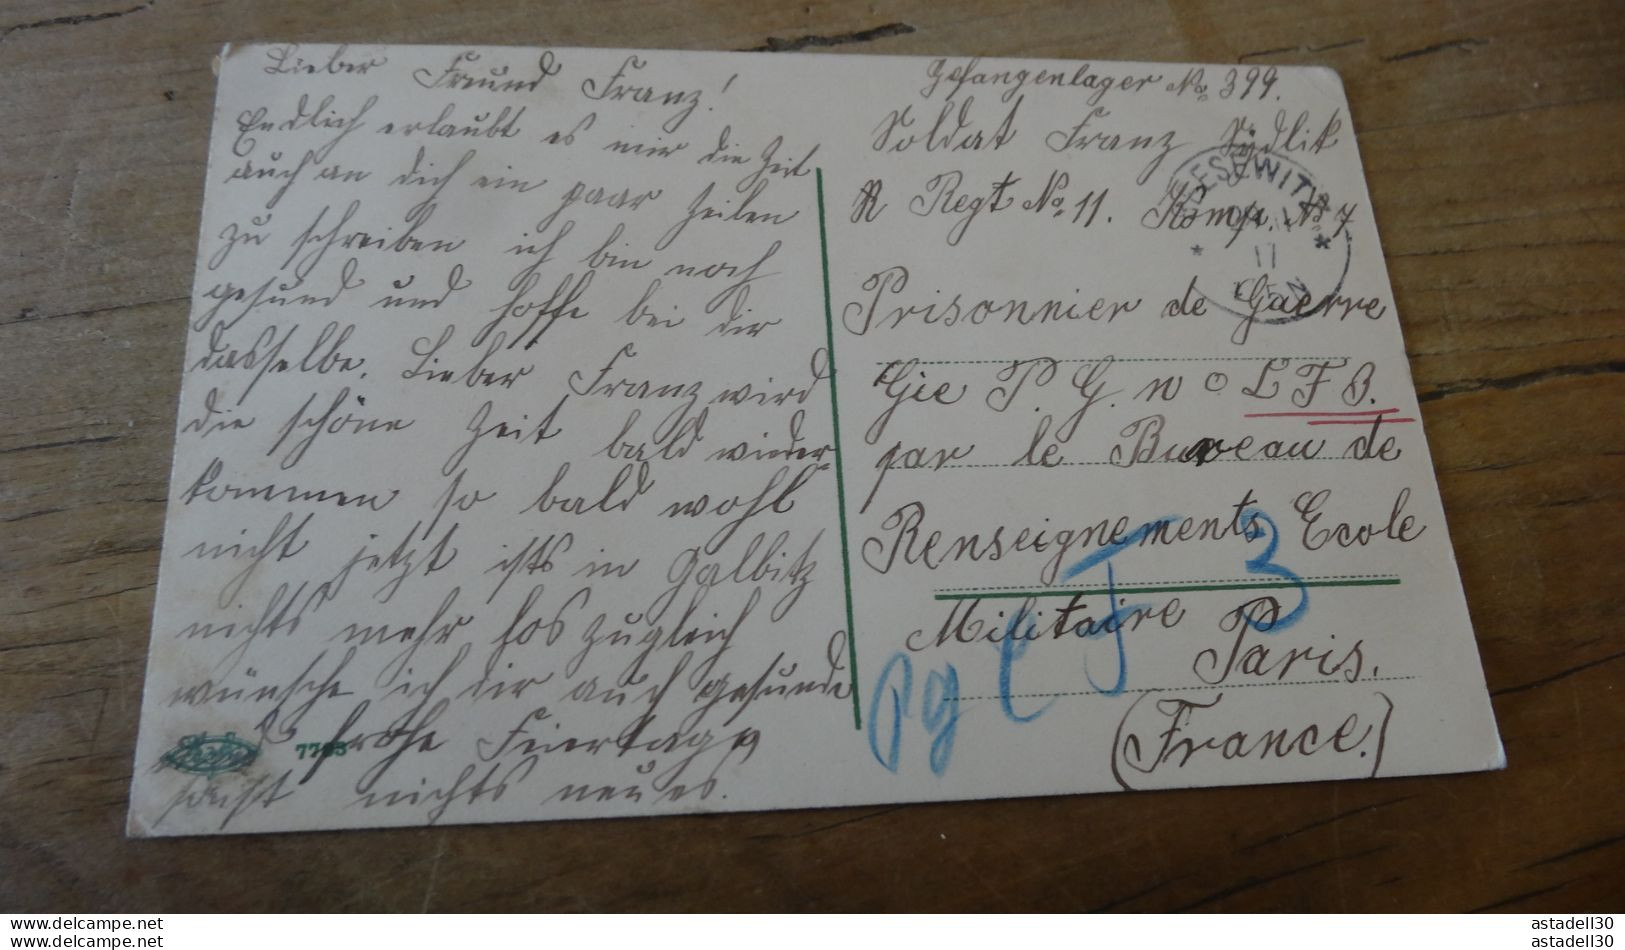 Lieber Freund Franz!
Endlich erlaubt es mir die Zeit
auch an dich ein paar Zeilen
zu schreiben ich bin noch
gesund und hoffe bei dir
dasselbe. Lieber Franz wird
die schöne Zeit bald wieder
kommen so bald wohl
nicht jetzt ists in Galbitz
nichts mehr los zugleich
wünsche ich dir auch gesunde
frohe Feiertage
sonst nichts neues.
7793
Gefangenlager No. 399.
Soldat Franz Sÿdlik
R Regt No. 11. Komp. No. 7
Prisonnier de Guerre
Gie P. G. no L F B.
par le Bureau de
Renseignements Ecole
Militaire Paris.
(France.)
Pg L F 3
17
astadell30
astadell30
www.delcampe.net
www.delcampe.net